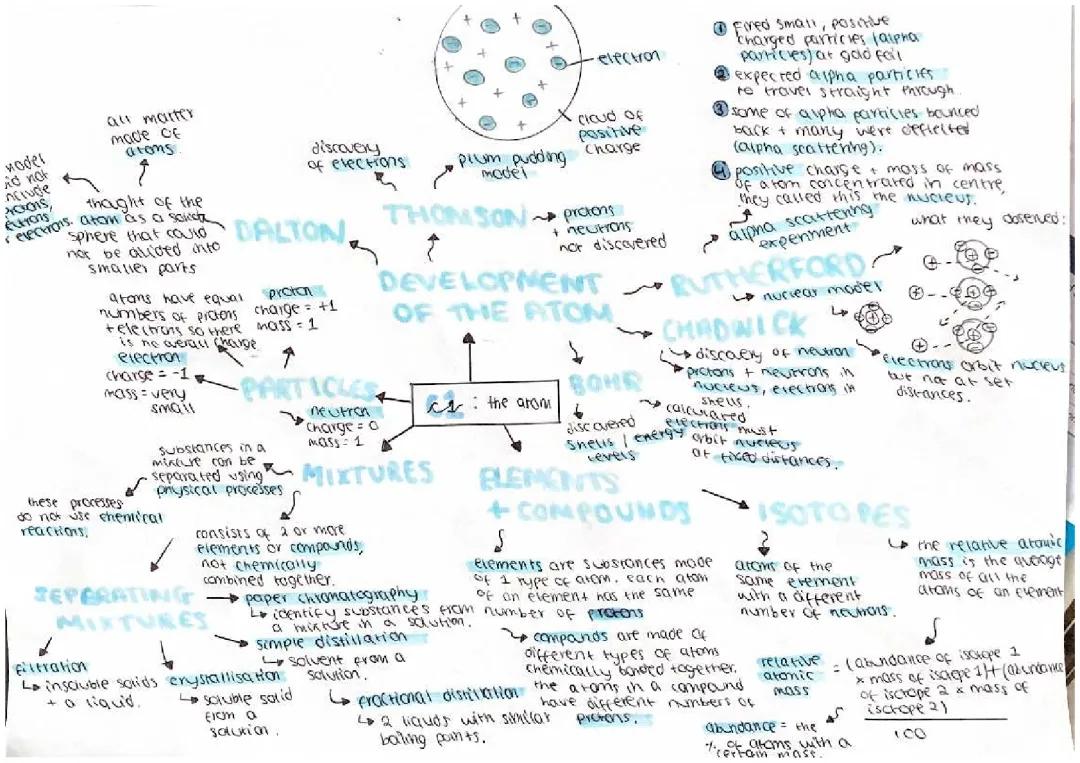 electron
cloud of
positive
charge
plum pudding
model
① Fired small, positive
charged particles (alpha
particles) at gold foil
② expected alpha particles
to travel straight through.
③ some of alpha particles bounced
back + many were deflected
(alpha scattering).
④ positive charge + mass of mass
of atom concentrated in centre,
they called this the nucleus.
alpha scattering
experiment
what they observed:
all matter
made of
atoms.
discovery
of electrons
model
did not
include
protons,
neutrons
electrons.
thought of the
atom as a solid
sphere that could
not be divided into
smaller parts
DALTON
THOMSON
protons
+ neutrons
not discovered
DEVELOPMENT
OF THE ATOM
RUTHERFORD
nuclear model
electrons orbit nucleus
but not at set
distances.
CHADWICK
discovery of neutron
protons + neutrons in
nucleus, electrons in
shells.
BOHR
discovered
shells / energy
levels
calculated
electrons must
orbit nucleus
at fixed distances.
atoms have equal
numbers of protons
+ electrons so there
is no overall charge
proton
charge = +1
mass = 1
electron
charge = -1
mass = very
small
PARTICLES
neutron
charge = 0
mass = 1
C1 : the atom
MIXTURES
substances in a
mixture can be
separated using
physical processes
these processes
do not use chemical
reactions.
consists of 2 or more
elements or compounds,
not chemically
combined together.
SEPERATING
MIXTURES
paper chromatography
identify substances from
a mixture in a solution.
simple distillation
solvent from a
solution.
filtration
insoluble solids
+ a liquid.
crystallisation
soluble solid
from a
solution.
fractional distillation
2 liquids with similar
boiling points.
ELEMENTS
+ COMPOUNDS
elements are substances made
of 1 type of atom. each atom
of an element has the same
number of protons
compounds are made of
different types of atoms
chemically bonded together.
the atoms in a compound
have different numbers of
protons.
ISOTOPES
atoms of the
same element
with a different
number of neutrons.
the relative atomic
mass is the average
mass of all the
atoms of an element
relative
atomic
mass
= (abundance of isotope 1
× mass of isotope 1) + (abundance
of isotope 2 × mass of
isotope 2)
100
abundance = the
% of atoms with a
certain mass.